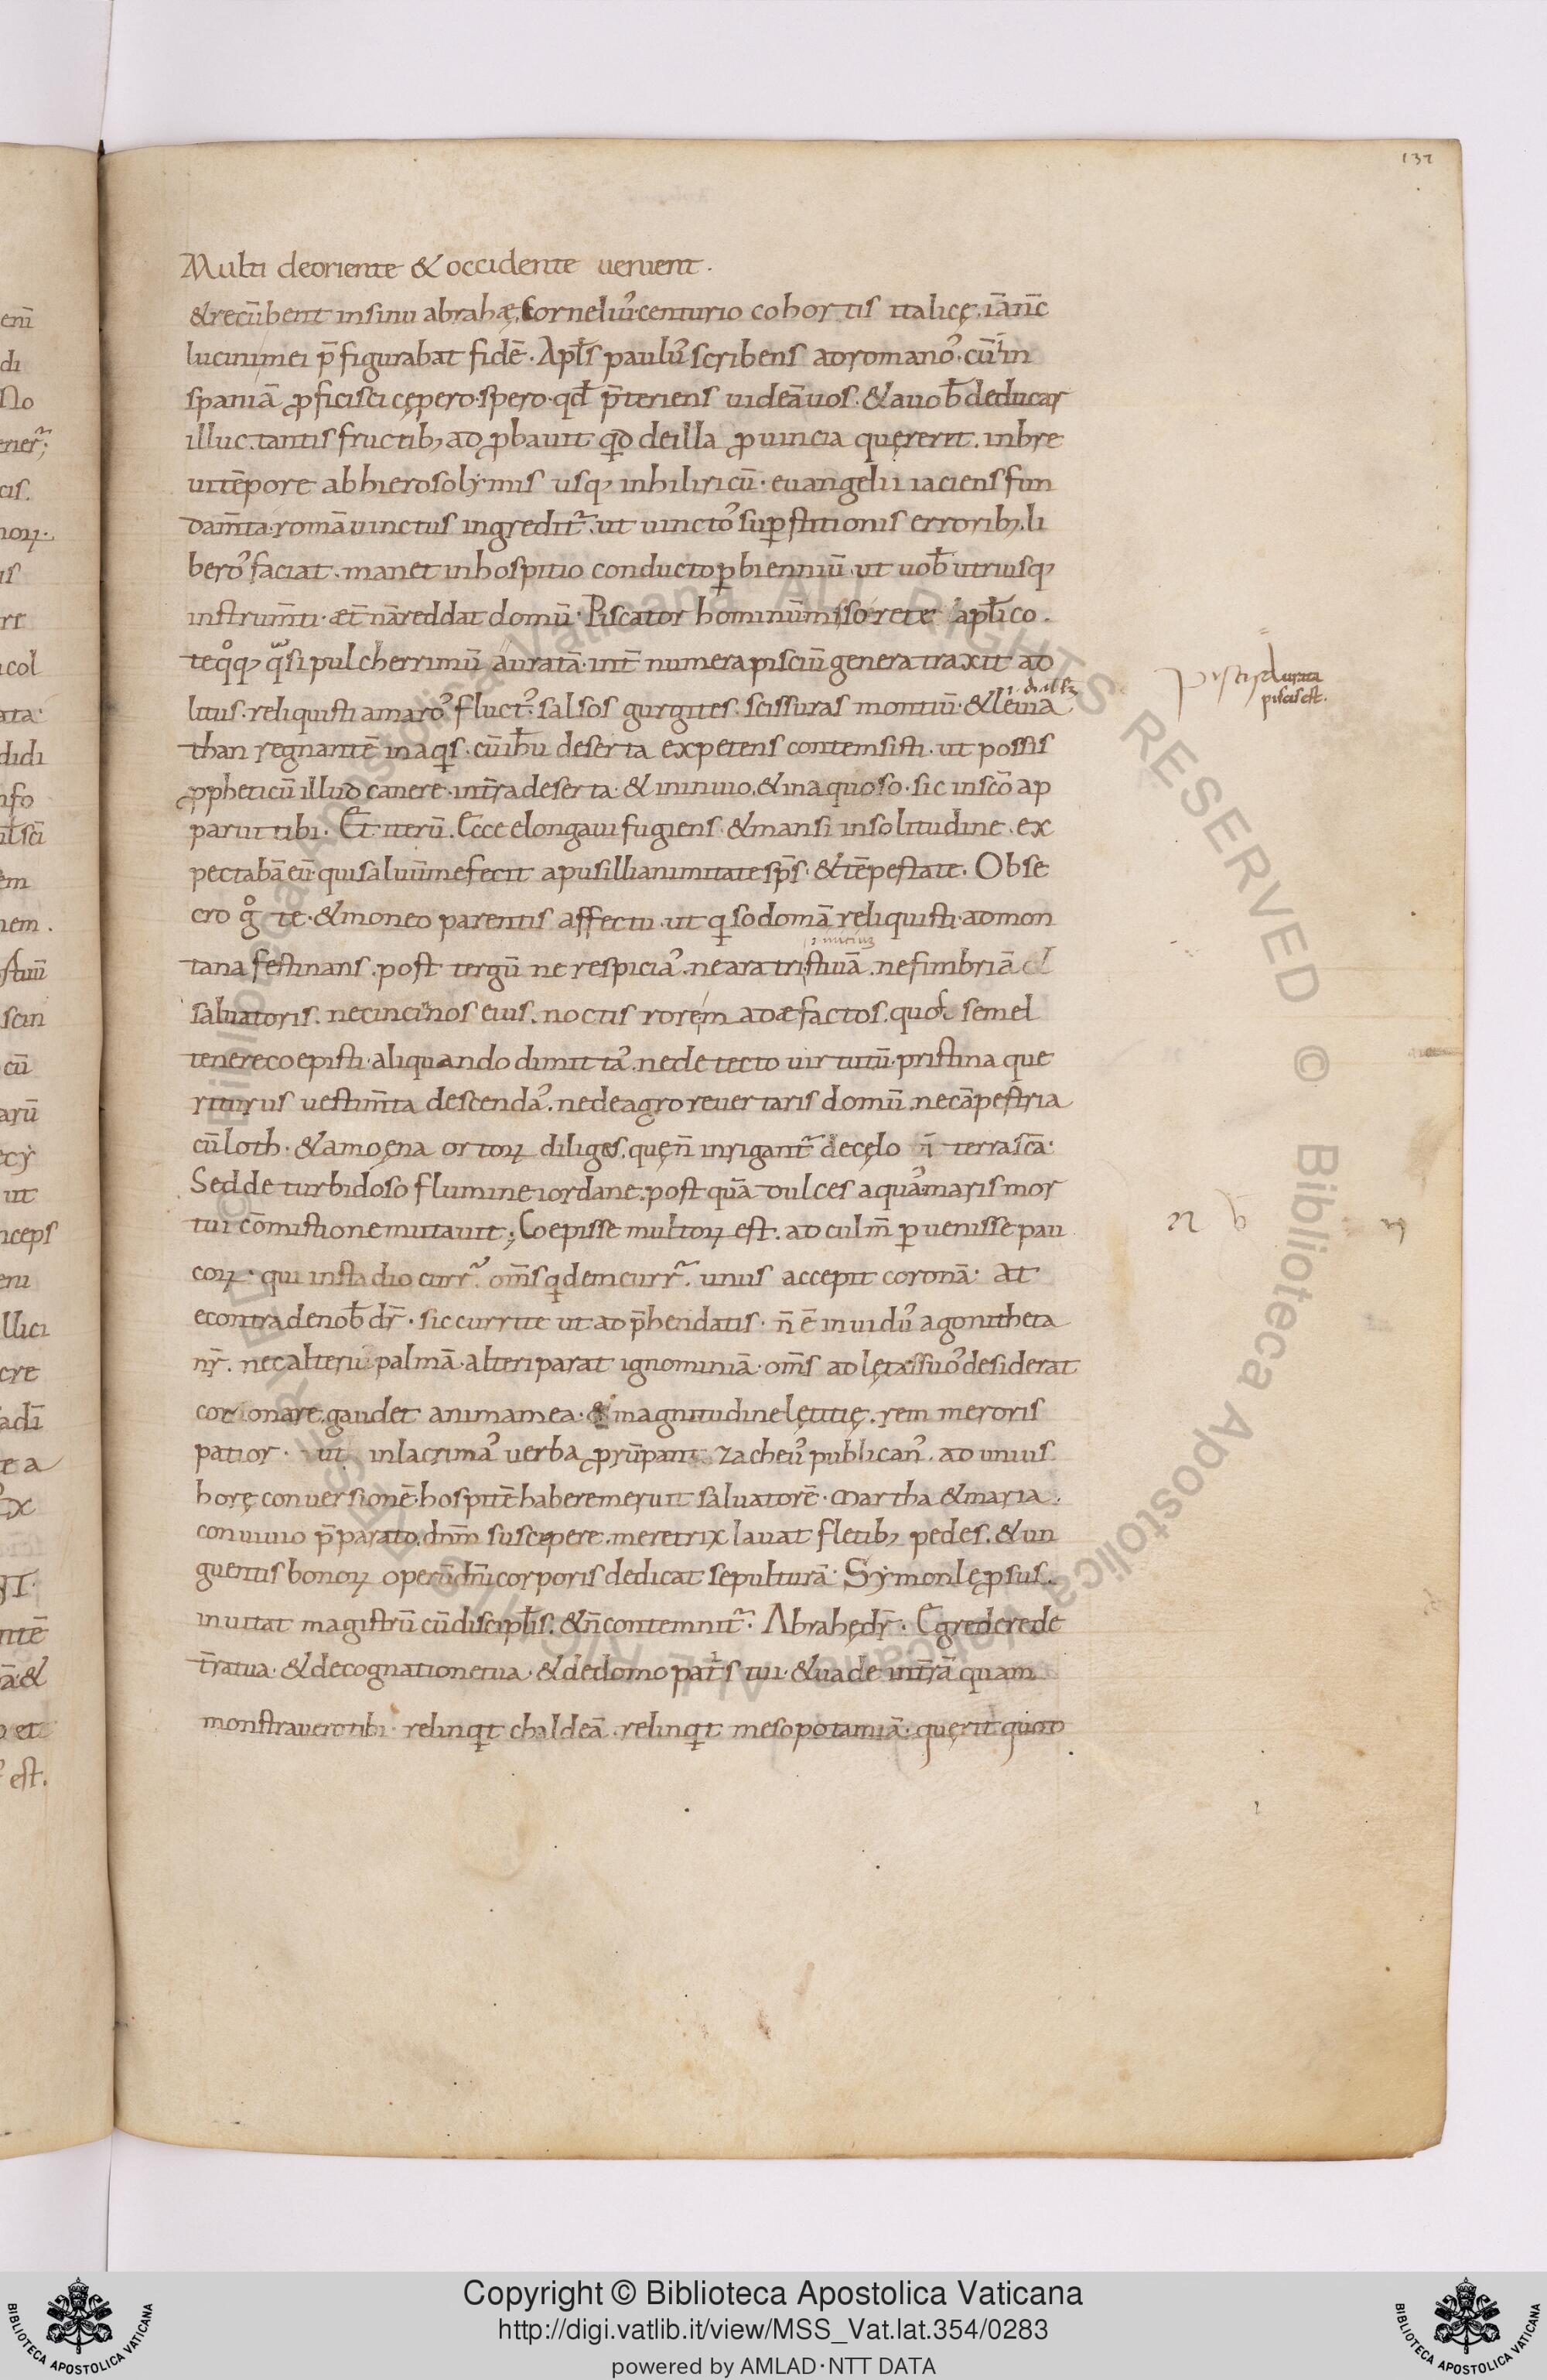 137
Multi deoriente & occidente uenient.
& recūbent insinu abrahę. Corneliuꝰ centurio cohortis italicę. iā nc̄
lucini mei p̄figurabat fidē. Apl̄s pauluꝰ scribens adromanoꝰ. cū in
spaniā ꝓficisci cępero. spero. qđ p̄teriens uideā uos. & auob̄ deducar
illuc. tantis fructibꝫ adꝓbauit qđ deilla ꝓuincia quęrerit. inbre
uitēpore abhierosolymis usqꝫ inhiliricū. euangelii iaciens fun
dam̄ta. romā uinctus ingredit᷑. ut uinctoꝰ suꝑstitionis erroribꝫ. li
beroꝰ faciat. manet inhospitio conducto ꝑ bienniū. ut uob̄ utriusqꝫ
instrum̄ti. æt̄nā reddat domū. Piscator hominū misso rete apl̄ico.
teqͦqꝫ qͣsi pulcherrimū auratā. int̄ numera pisciū genera traxit ad
litus. reliquisti amaroꝰ fluct᷒. salsos gurgites. scissuras montiū. & leuia
than regnantē inaqͥs. cū ih̄u deserta expetens contemsisti. ut possis
ꝓpheticū illud canere. int̄ra deserta. & ininuio. & inaquoso. sic insc̄o ap
parui tibi. Et iterū. Ecce elongaui fugiens. & mansi insolitudine. ex
pectabā eū. qui saluū me fecit apusillianimitate sp̄s. & tēpestate. Obse
cro gͦ te. & moneo parentis affectu. ut qͥ sodomā reliquisti. admon
tana festinans. post tergū ne respiciaꝰ. ne aratri stiuā. ne fimbriā
saluatoris. necincinnos eius. noctis rorem adæfactos. quos semel
tenere coepisti. aliquando dimittaꝰ. ne de tecto uirtutū. pristina que
riturus uestim̄ta descendaꝰ. nedeagro reuertaris domū. ne cāpestria
cū loth. & amoęna ortoꝝ diliges. quę n̄ inrigant᷑ de cęlo terra sc̄a.
Sed de turbidoso flumine iordane. post quā dulces aquaꝰ maris mor
tui cōmistione mutauit; Coepisse multoꝝ est. ad culm̄ ꝑuenisse pau
coꝝ. qui instadio curr᷑. om̄s qͥdem curr᷑. unus accepit coronā. At
econtra denob̄ dr̄. sic currite ut adp̄hendatis. n̄ ē inuiduꝰ agonitheta
nr̄. nec alteriuꝰ palmā. alteri parat ignominiā. om̄s adlętas suoꝰ desiderat
coronare. gaudet anima mea. & magnitudine lętitię. rem meroris
patior. ut inlacrimaꝰ uerba ꝓrūpant. Zacheuꝰ publicanꝰ. ad unius
horę conuersionē. hospitē habere meruit saluatorē. Martha & maria.
conuiuio p̄parato. dnm̄ suscepere. meretrix lauat fletibꝫ pedes. & un
guentis bonoꝝ operū dn̄i corporis dedicat sepulturā. Symon lęꝓsus.
inuitat magistrū cū discipl̄is. & n̄ contemnit᷑. Abrahę dr̄. Egredere de
t̄ra tua. & de cognatione tua. & de domo pat̄s tui. & uade int̄rā quam
monstrauero tibi. relinqͥt chaldeā. relinqͥt mesopotamiā. quęrit quod
piscis durata
piscis est.
n b
Copyright © Biblioteca Apostolica Vaticana
http://digi.vatlib.it/view/MSS_Vat.lat.354/0283
powered by AMLAD·NTT DATA
BIBLIOTECA APOSTOLICA VATICANA
BIBLIOTECA APOSTOLICA VATICANA